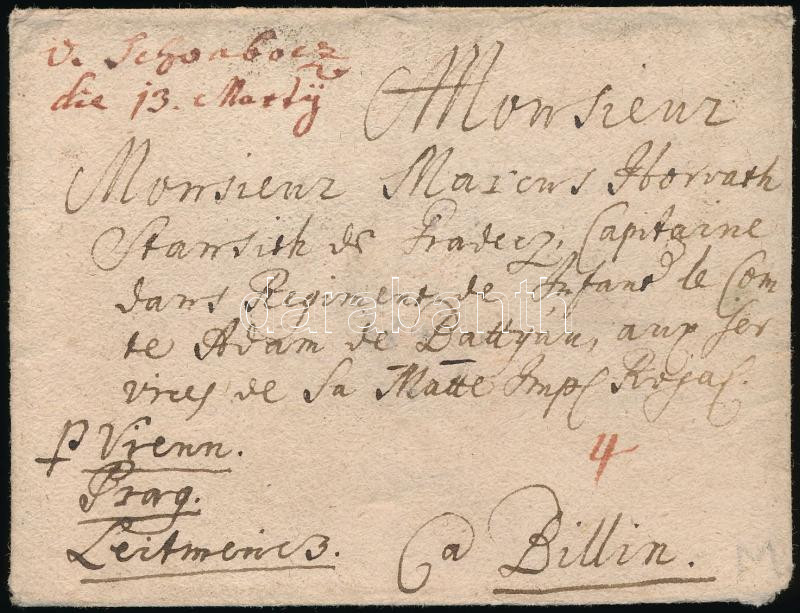 v. Schonbocz
die 13. Martÿ
Monsieur
Monsieur Marcus Horvath
Stansith de Gradecz, Capitaine
dans Regiment de Infant: le Com
te Adam de Battÿán, aux ser
vices de Sa Matte Imp: Roya:
darabanth
p Vienn.
Prag.
Leitmericz.
4
a Billin.